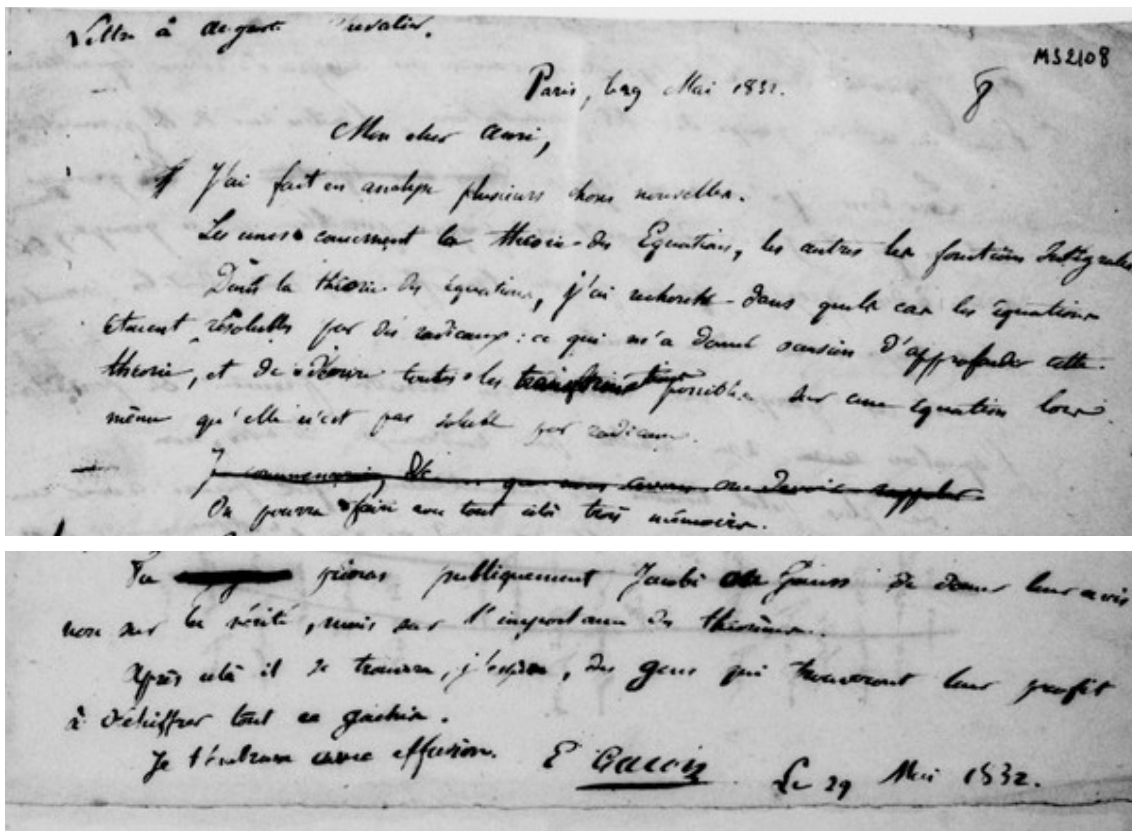 Lettre à Auguste Chevalier.
MS2108
Paris, le 29 Mai 1832.
8
Mon cher Ami,
J'ai fait en analyse plusieurs choses nouvelles.
Les unes concernent la théorie des Equations, les autres les fonctions Intégrales.
Dans la théorie des équations, j'ai recherché dans quels cas les équations
étaient résolubles par des radicaux : ce qui m'a donné occasion d'approfondir cette
théorie, et de décrire toutes les transformations possibles sur une équation lors
même qu'elle n'est pas soluble par radicaux.
que nous avons devoir rappeler
On pourra faire avec tout cela trois mémoires.
Tu prieras publiquement Jacobi ou Gauss de donner leur avis
non sur la vérité, mais sur l'importance des théorèmes.
Après cela il se trouvera, j'espère, des gens qui trouveront leur profit
à déchiffrer tout ce gachis.
Je t'embrasse avec effusion. E Galois Le 29 Mai 1832.